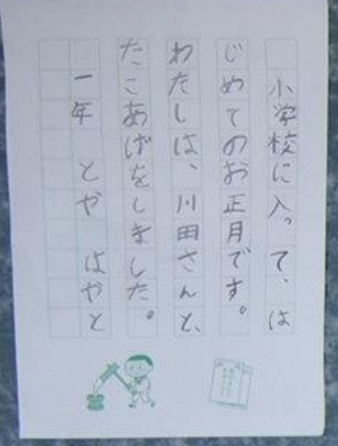 小学校に入って、は
じめてのお正月です。
わたしは、川田さんと、
たこあげをしました。
一年 とや はやと